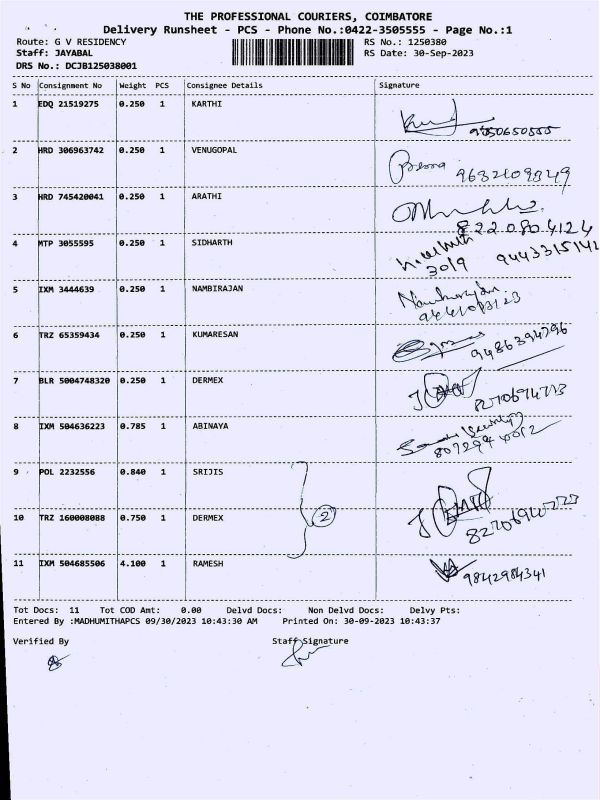 THE PROFESSIONAL COURIERS, COIMBATORE
Delivery Runsheet - PCS - Phone No.:0422-3505555 - Page No.:1
Route: G V RESIDENCY RS No.: 1250380
Staff: JAYABAL RS Date: 30-Sep-2023
DRS No.: DCJB125038001
S No Consignment No Weight PCS Consignee Details Signature
1 EDQ 21519275 0.250 1 KARTHI
2 HRD 306963742 0.250 1 VENUGOPAL
3 HRD 745420041 0.250 1 ARATHI
8220804124
4 MTP 3055595 0.250 1 SIDHARTH
3019 9443315142
5 IXM 3444639 0.250 1 NAMBIRAJAN
6 TRZ 65359434 0.250 1 KUMARESAN
9486394796
7 BLR 5004748320 0.250 1 DERMEX
8 IXM 504636223 0.785 1 ABINAYA
9 POL 2232556 0.840 1 SRIJIS
2
10 TRZ 160008088 0.750 1 DERMEX
11 IXM 504685506 4.100 1 RAMESH
9842984341
Tot Docs: 11 Tot COD Amt: 0.00 Delvd Docs: Non Delvd Docs: Delvy Pts:
Entered By :MADHUMITHAPCS 09/30/2023 10:43:30 AM Printed On: 30-09-2023 10:43:37
Verified By Staff Signature